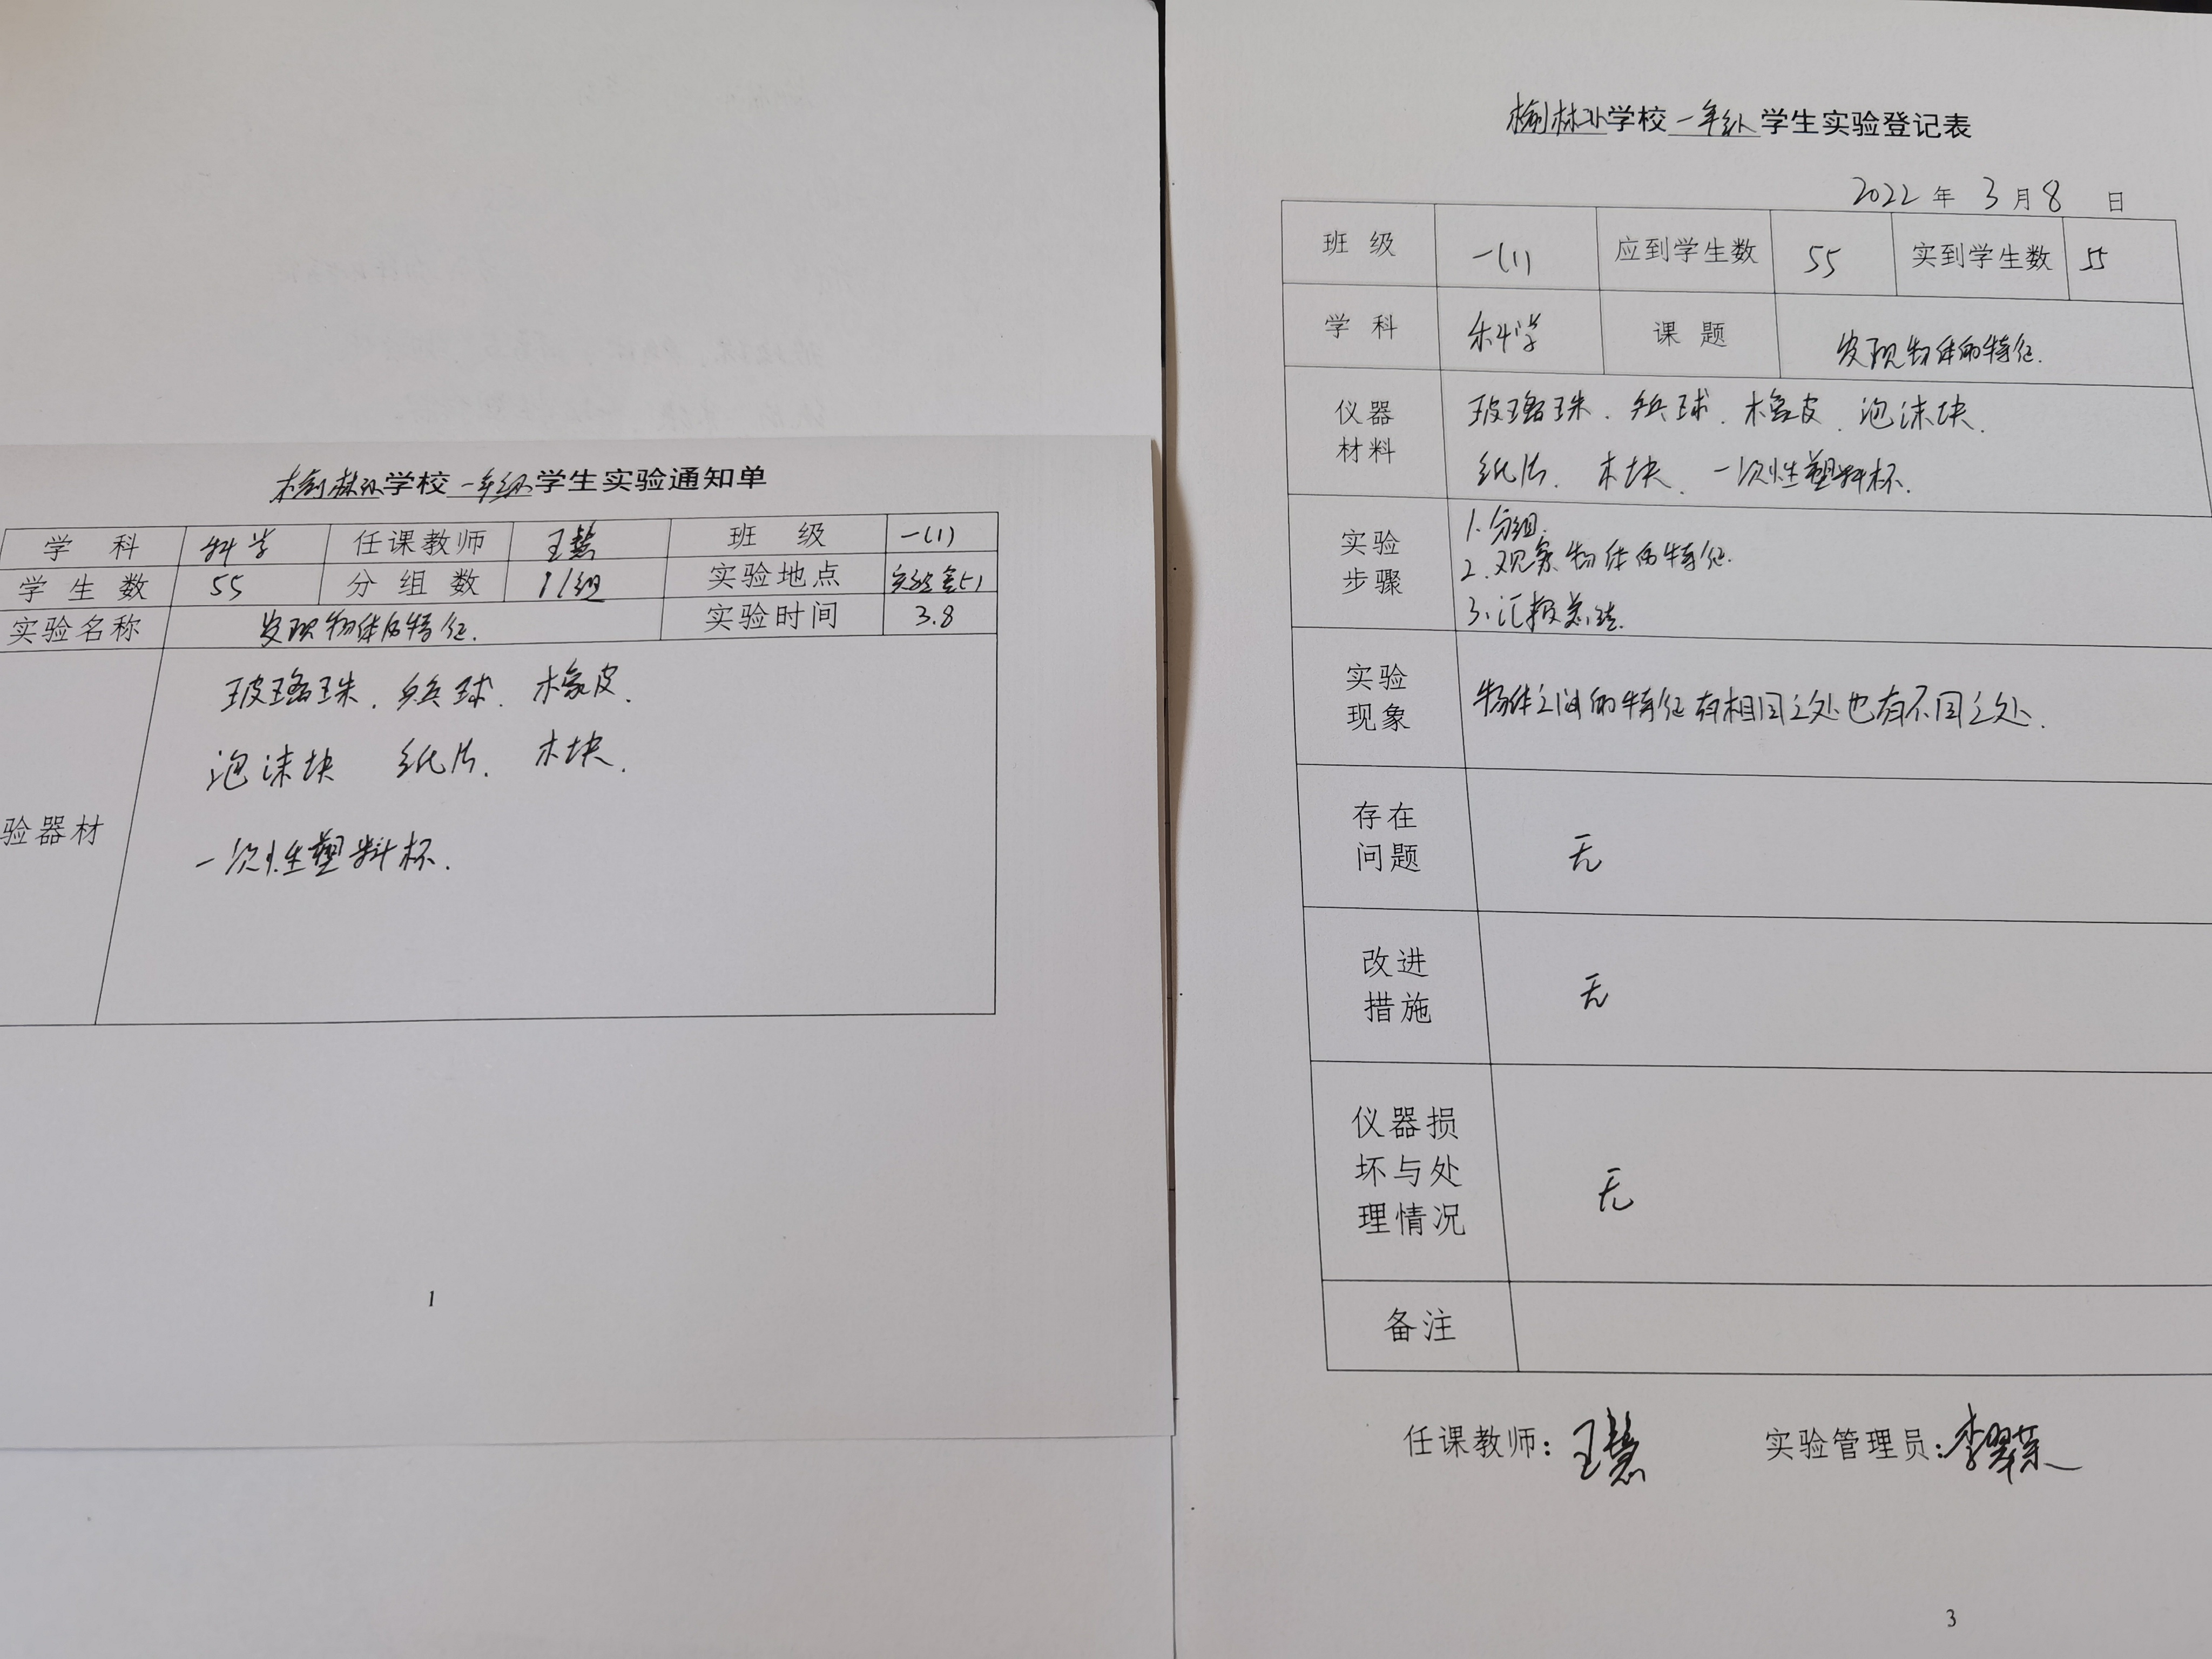 榆林小学校一年级学生实验通知单
学 科 科学 任课教师 王慧 班 级 一(1)
学 生 数 55 分 组 数 11组 实验地点 实验室(1)
实验名称 发现物体的特征. 实验时间 3.8
验器材
玻璃珠. 乒乓球. 橡皮.
泡沫块 纸片. 木块.
一次性塑料杯.
1
榆林小学校一年级学生实验登记表
2022 年 3 月 8 日
班 级 一(1) 应到学生数 55 实到学生数 55
学 科 科学 课 题 发现物体的特征.
仪器材料 玻璃珠. 乒乓球. 橡皮. 泡沫块.
纸片. 木块. 一次性塑料杯.
实验步骤 1.分组.
2.观察物体的特征.
3.汇报总结.
实验现象 物体之间的特征有相同之处也有不同之处.
存在问题 无
改进措施 无
仪器损坏与处理情况 无
备注
任课教师:王慧 实验管理员:李翠荣
3